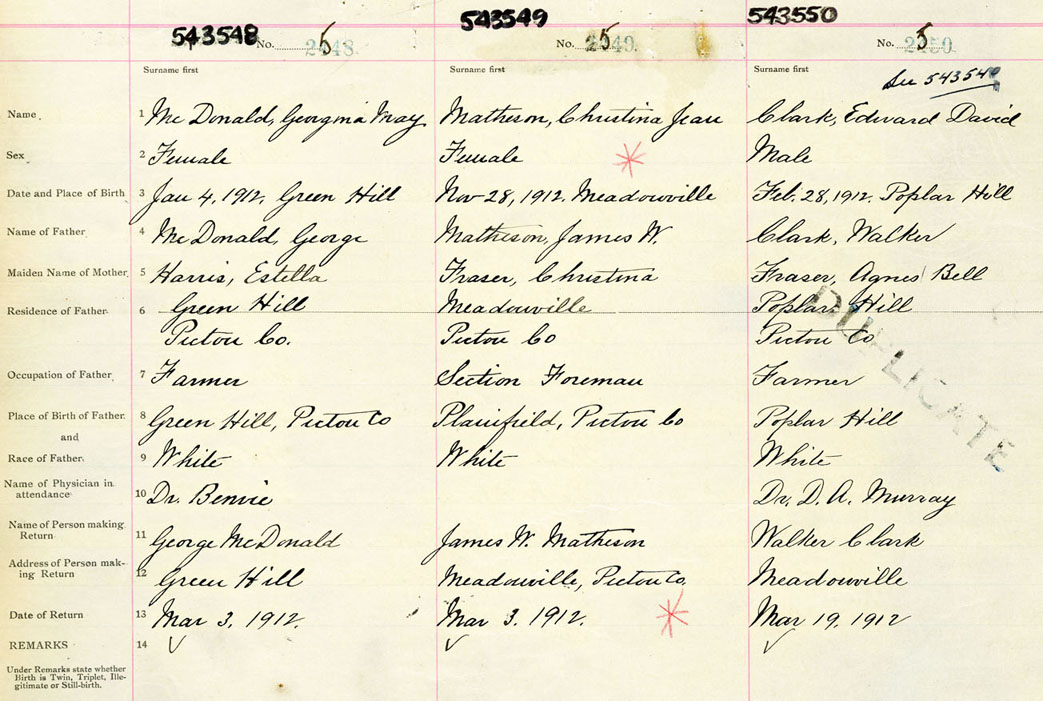 543548 543549 543550
No. 5 2548 No. 5 2549 No. 5 2550
Surname first Surname first Surname first
See 543540
Name 1 Mc Donald, Georgina May Matheson, Christina Jean Clark, Edward David
Sex 2 Female Female Male
Date and Place of Birth 3 Jan 4, 1912, Green Hill Nov 28, 1912. Meadowville Feb. 28, 1912. Poplar Hill
Name of Father 4 Mc Donald, George Matheson, James W. Clark, Walker
Maiden Name of Mother 5 Harris, Estella Fraser, Christina Fraser, Agnes Bell
Residence of Father 6 Green Hill Meadowville Poplar Hill
Pictou Co. Pictou Co Pictou Co
DUPLICATE
Occupation of Father 7 Farmer Section Foreman Farmer
Place of Birth of Father 8 Green Hill, Pictou Co Plainfield, Pictou Co Poplar Hill
and
Race of Father 9 White White White
Name of Physician in
attendance 10 Dr. Benvie Dr. D. A. Murray
Name of Person making
Return 11 George McDonald James W. Matheson Walker Clark
Address of Person mak-
ing Return 12 Green Hill Meadowville, Pictou Co, Meadowville
Date of Return 13 Mar 3, 1912. Mar 3. 1912. Mar 19, 1912
REMARKS 14
Under Remarks state whether
Birth is Twin, Triplet, Ille-
gitimate or Still-birth.